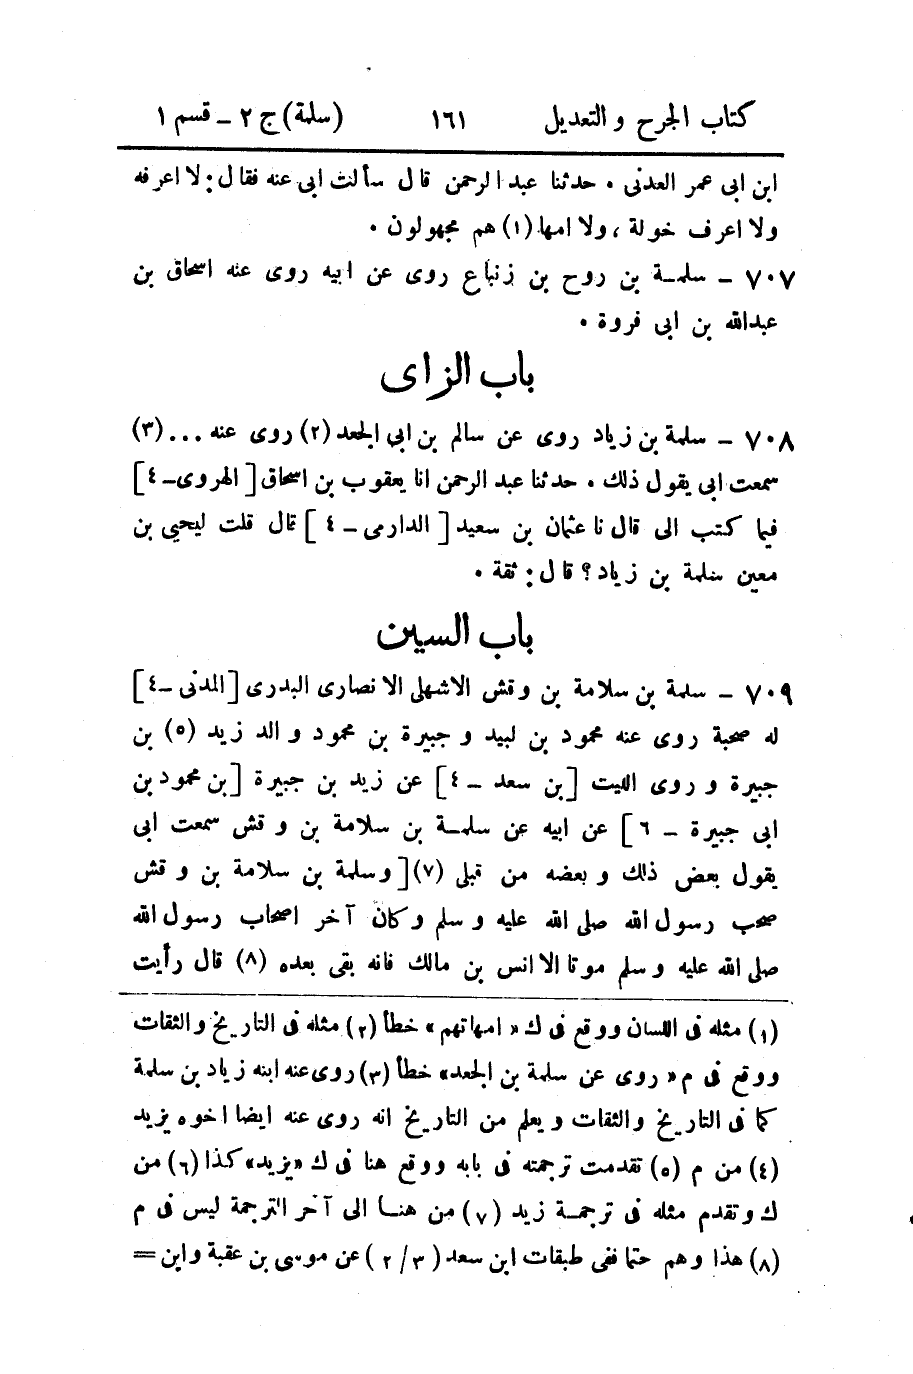 كتاب الجرح والتعديل ١٦١ (سلمة) ج ٢ – قسم ١
ابن ابى عمر العدنى . حدثنا عبد الرحمن قال سألت ابى عنه فقال : لا اعرفه
ولا اعرف خولة ، ولا امها (١) هم مجهولون .
٧٠٧ – سلمة بن روح بن زنباع روى عن ابيه روى عنه اسحاق بن
عبدالله بن ابى فروة .
باب الزاى
٧٠٨ – سلمة بن زياد روى عن سالم بن ابى الجعد (٢) روى عنه ... (٣)
سمعت ابى يقول ذلك . حدثنا عبد الرحمن انا يعقوب بن اسحاق [ الهروى – ٤ ]
فيما كتب الى قال نا عثمان بن سعيد [ الدارمى – ٤ ] قال قلت ليحيى بن
معين سلمة بن زياد ؟ قال : ثقة .
باب السين
٧٠٩ – سلمة بن سلامة بن وقش الاشهلى الانصارى البدرى [المدنى – ٤]
له صحبة روى عنه محمود بن لبيد و جبيرة بن محمود والد زيد (٥) بن
جبيرة و روى الليث [بن سعد – ٤] عن زيد بن جبيرة [بن محمود بن
ابى جبيرة – ٦ ] عن ابيه عن سلمة بن سلامة بن وقش سمعت ابى
يقول بعض ذلك و بعضه من قبلى (٧) [ وسلمة بن سلامة بن وقش
صحب رسول الله صلى الله عليه وسلم وكان آخر اصحاب رسول الله
صلى الله عليه وسلم موتا الا انس بن مالك فانه بقى بعده (٨) قال رأيت
(١) مثله فى اللسان ووقع فى ك « امهاتهم » خطأ (٢) مثله فى التاريخ والثقات
ووقع فى م « روى عن سلمة بن الجعد » خطأ (٣) روى عنه ابنه زياد بن سلمة
كما فى التاريخ والثقات ويعلم من التاريخ انه روى عنه ايضا اخوه يزيد
(٤) من م (٥) تقدمت ترجمته فى بابه ووقع هنا فى ك « يزيد » كذا (٦) من
ك وتقدم مثله فى ترجمة زيد (٧) من هنا الى آخر الترجمة ليس فى م
(٨) هذا وهم حتما ففى طبقات ابن سعد ( ٣ / ٢ ) عن موسى بن عقبة وابن =